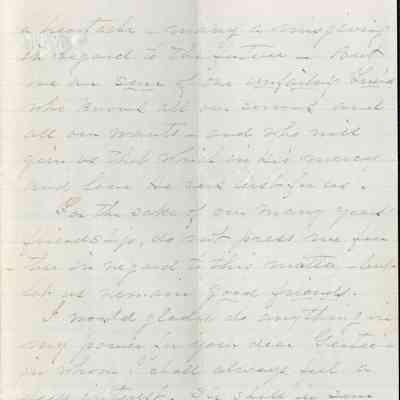 a heartache - many a misgiving
in regard to the future - But
we are sure of one unfailing friend
who knows all our sorrows and
all our wants - and who will
give us that which in His mercy
and love He sees best for us.
For the sake of our many years
friendship, do not press me fur-
ther in regard to this matter - but
let us remain good friends.
I would gladly do anything in
my power for your dear
in whom I shall always feel a
interest. He shall be